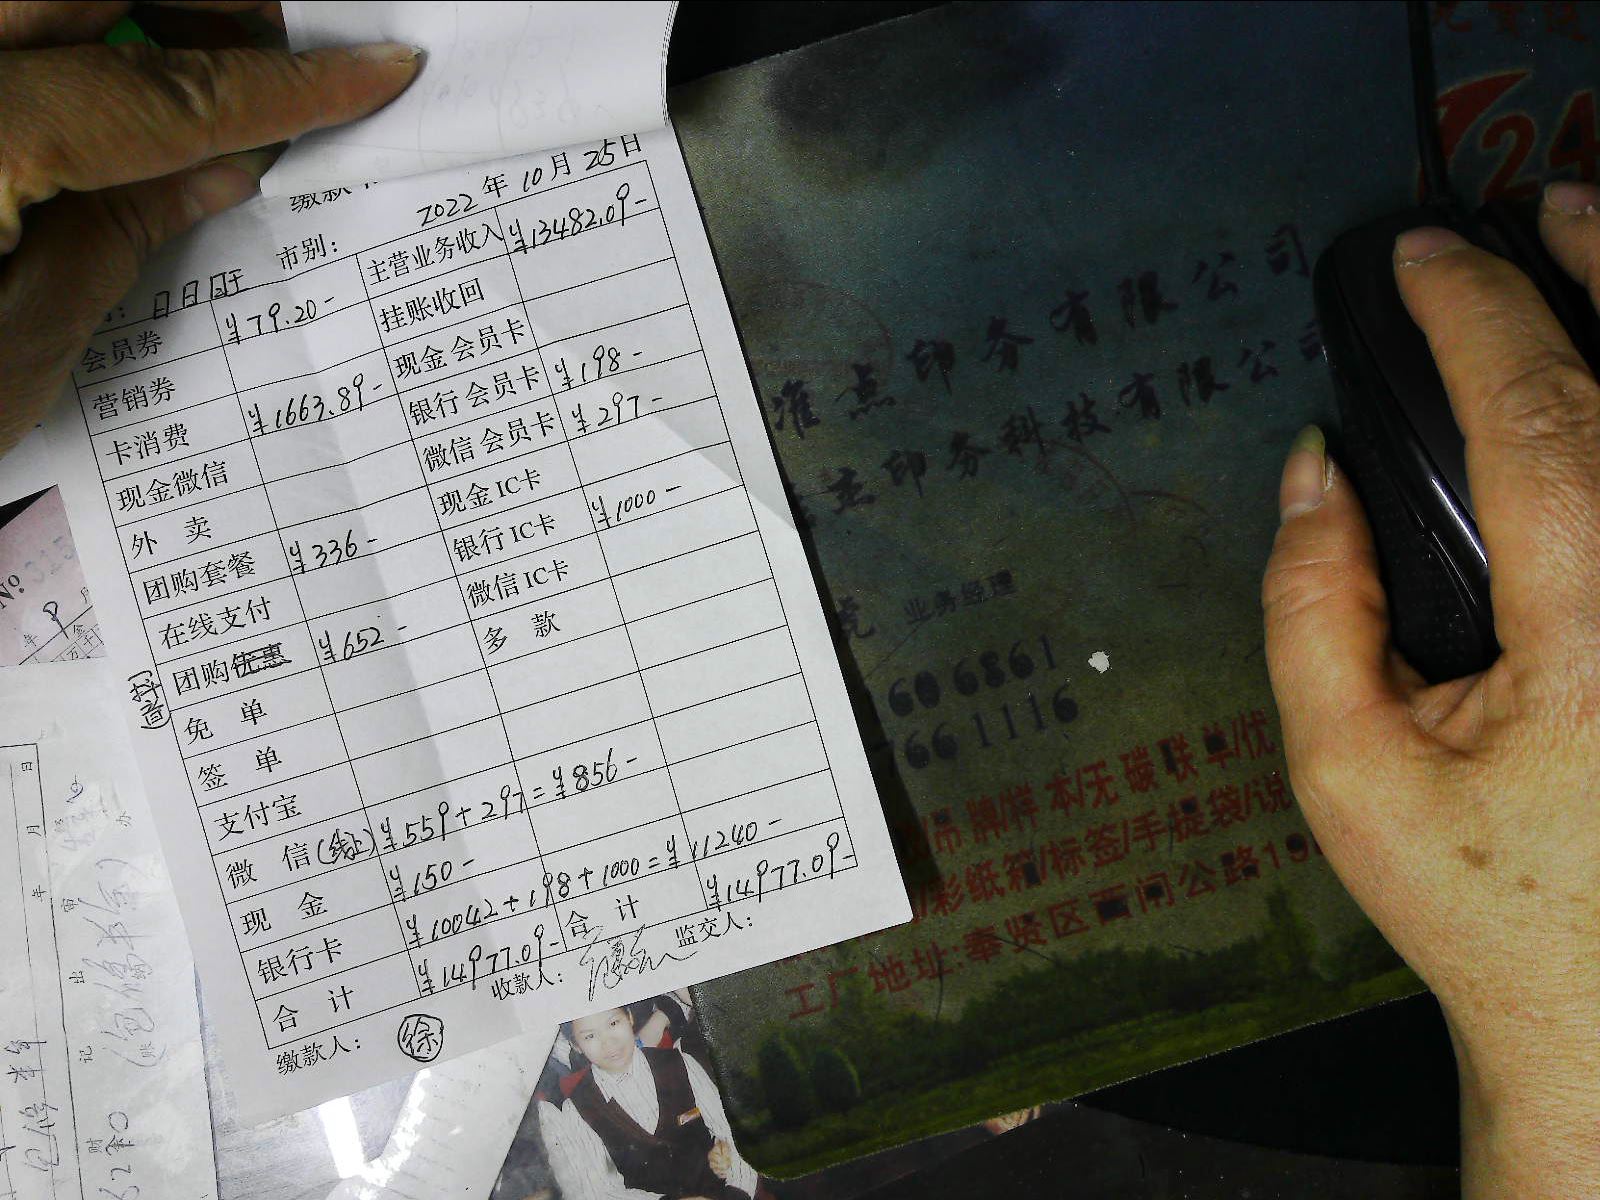 缴款
2022年10月25日
市别：
会员券 ¥79.20- 主营业务收入 ¥13482.09-
营销券 挂账收回
卡消费 ¥1663.89- 现金会员卡
现金微信 银行会员卡 ¥198-
外 卖 微信会员卡 ¥297-
团购套餐 ¥336- 现金IC卡
在线支付 银行IC卡 ¥1000-
团购优惠 ¥652- 微信IC卡
(抖音)
免 单 多 款
签 单
支付宝
微 信(线上) ¥559+297=¥856-
现 金 ¥150-
银行卡 ¥10042+198+1000=¥11240-
合 计 ¥14977.09- 合 计 ¥14977.09-
缴款人： 徐 收款人： 监交人：
准点印务有限公司
印务科技有限公司
业务经理
60 6861
766 1116
吊牌/样本/无碳联单/优
/彩纸箱/标签/手提袋/说
工厂地址:奉贤区西闸公路19
24
No
年
月
日
审
出
记
财